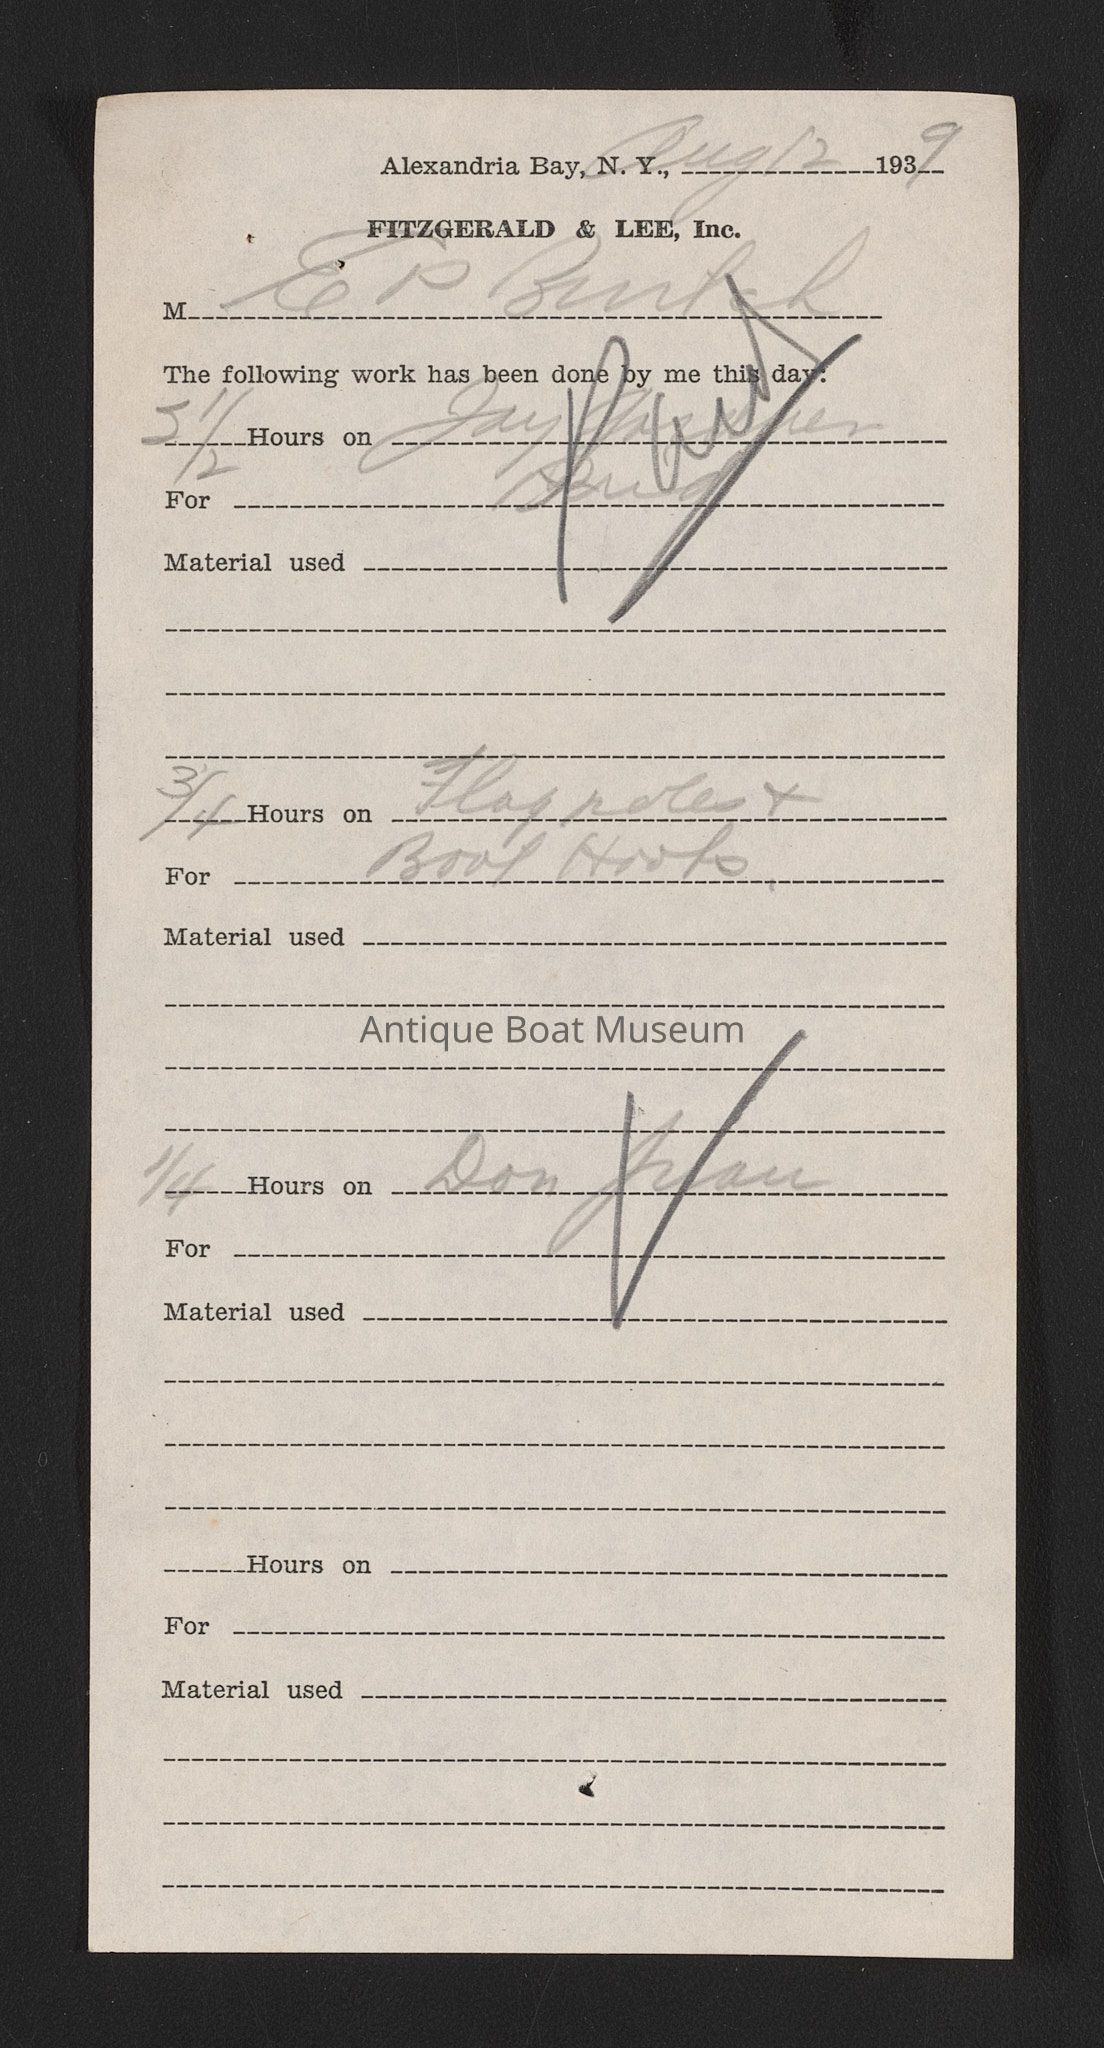 Alexandria Bay, N. Y., Aug 12 1939
FITZGERALD & LEE, Inc.
M E P
The following work has been done by me this day:
Paid
Hours on Jay
For
Material used
3/4 Hours on Flag poles +
For Boat Hooks.
Material used
Antique Boat Museum
1/4 Hours on Don Juan
For
Material used
Hours on
For
Material used